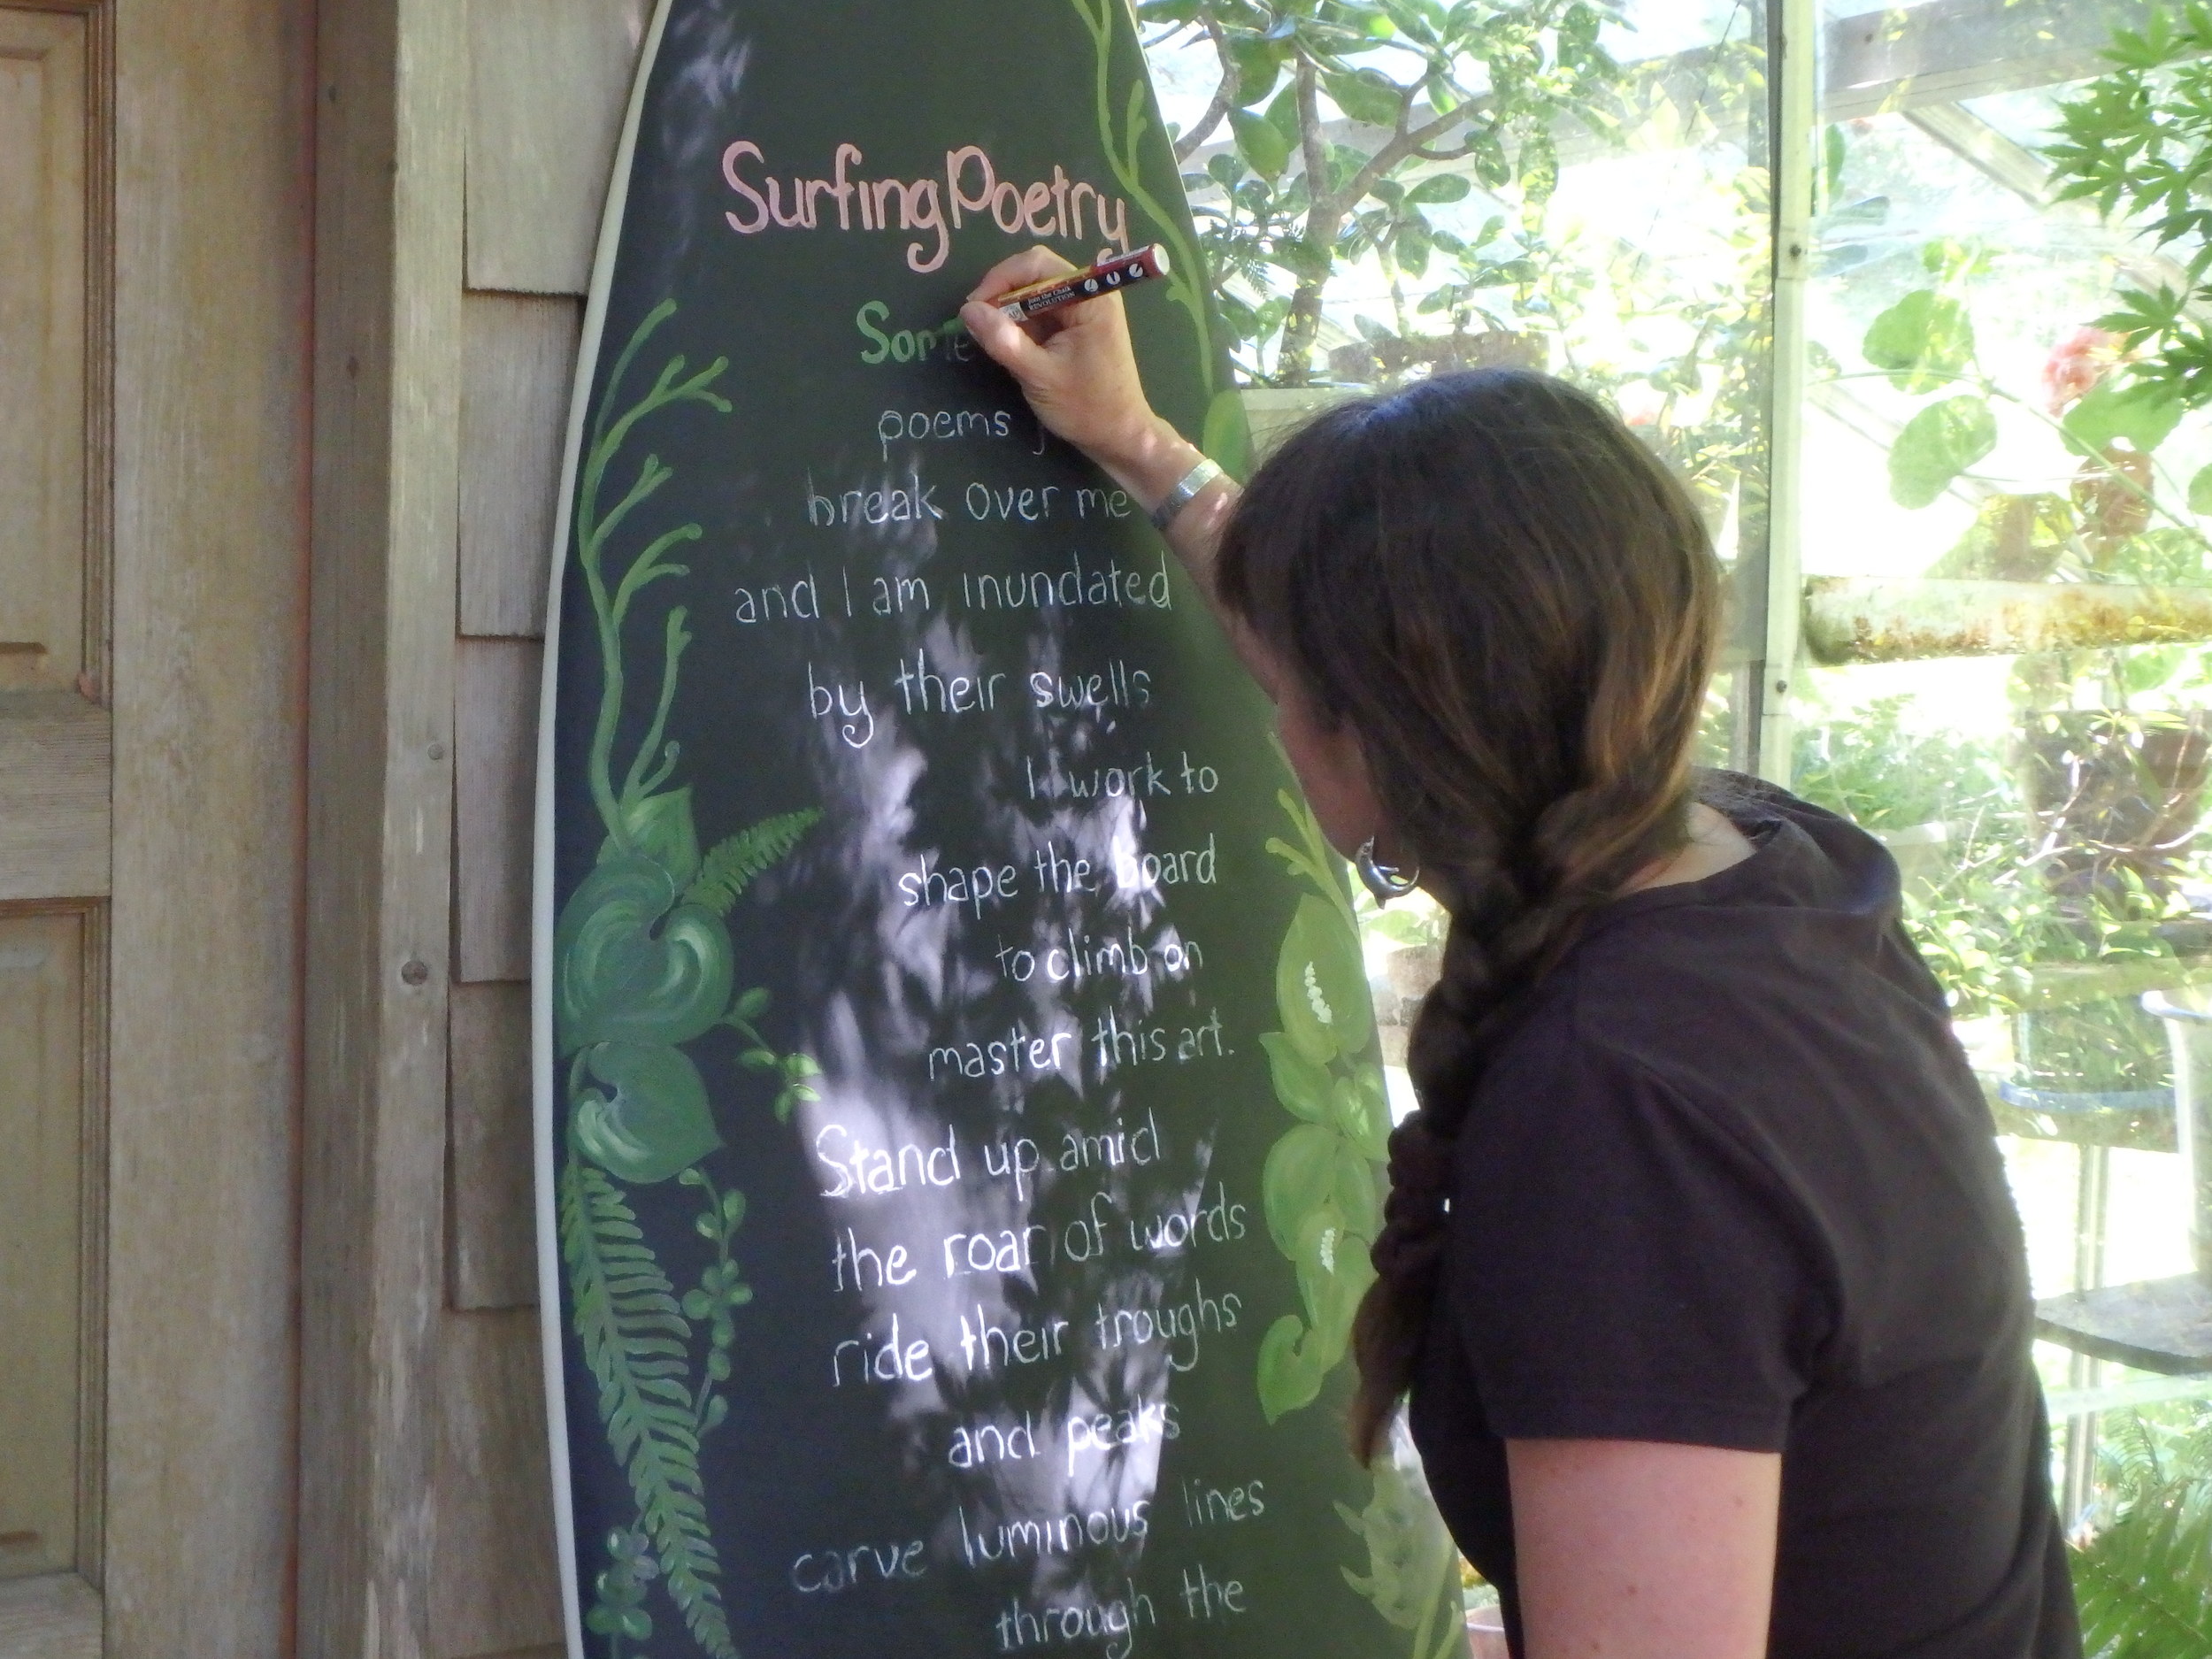 Surfing Poetry
Some
poems
break over me
and I am inundated
by their swells
I work to
shape the board
to climb on
master this art.
Stand up amid
the roar of words
ride their troughs
and peaks
carve luminous lines
through the
Join the Chalk
REVOLUTION